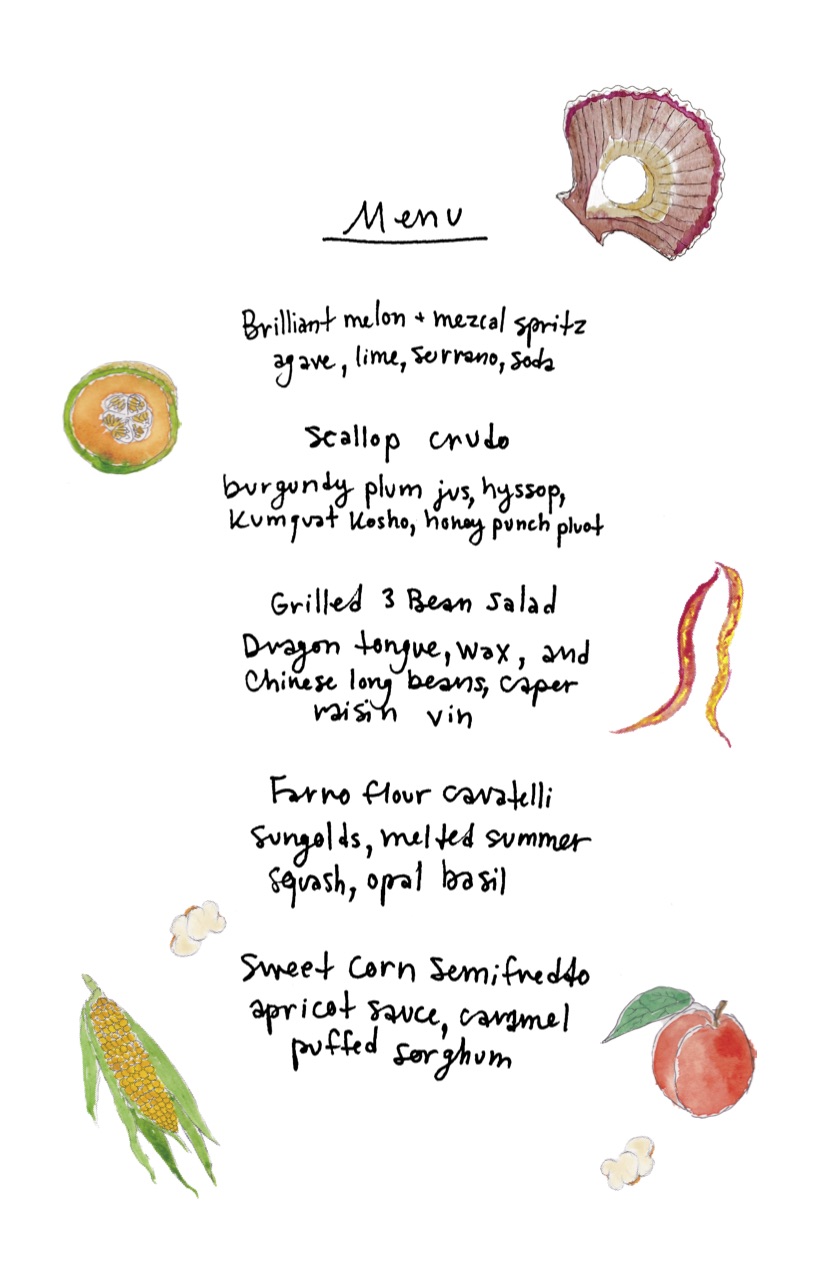 Menu
Brilliant melon + mezcal spritz
agave, lime, serrano, soda
Scallop crudo
burgundy plum jus, hyssop,
Kumquat Kosho, honey punch pluot
Grilled 3 Bean Salad
Dragon tongue, wax, and
Chinese long beans, caper
raisin vin
Farro flour cavatelli
Sungolds, melted summer
squash, opal basil
Sweet Corn Semifreddo
apricot sauce, caramel
puffed sorghum